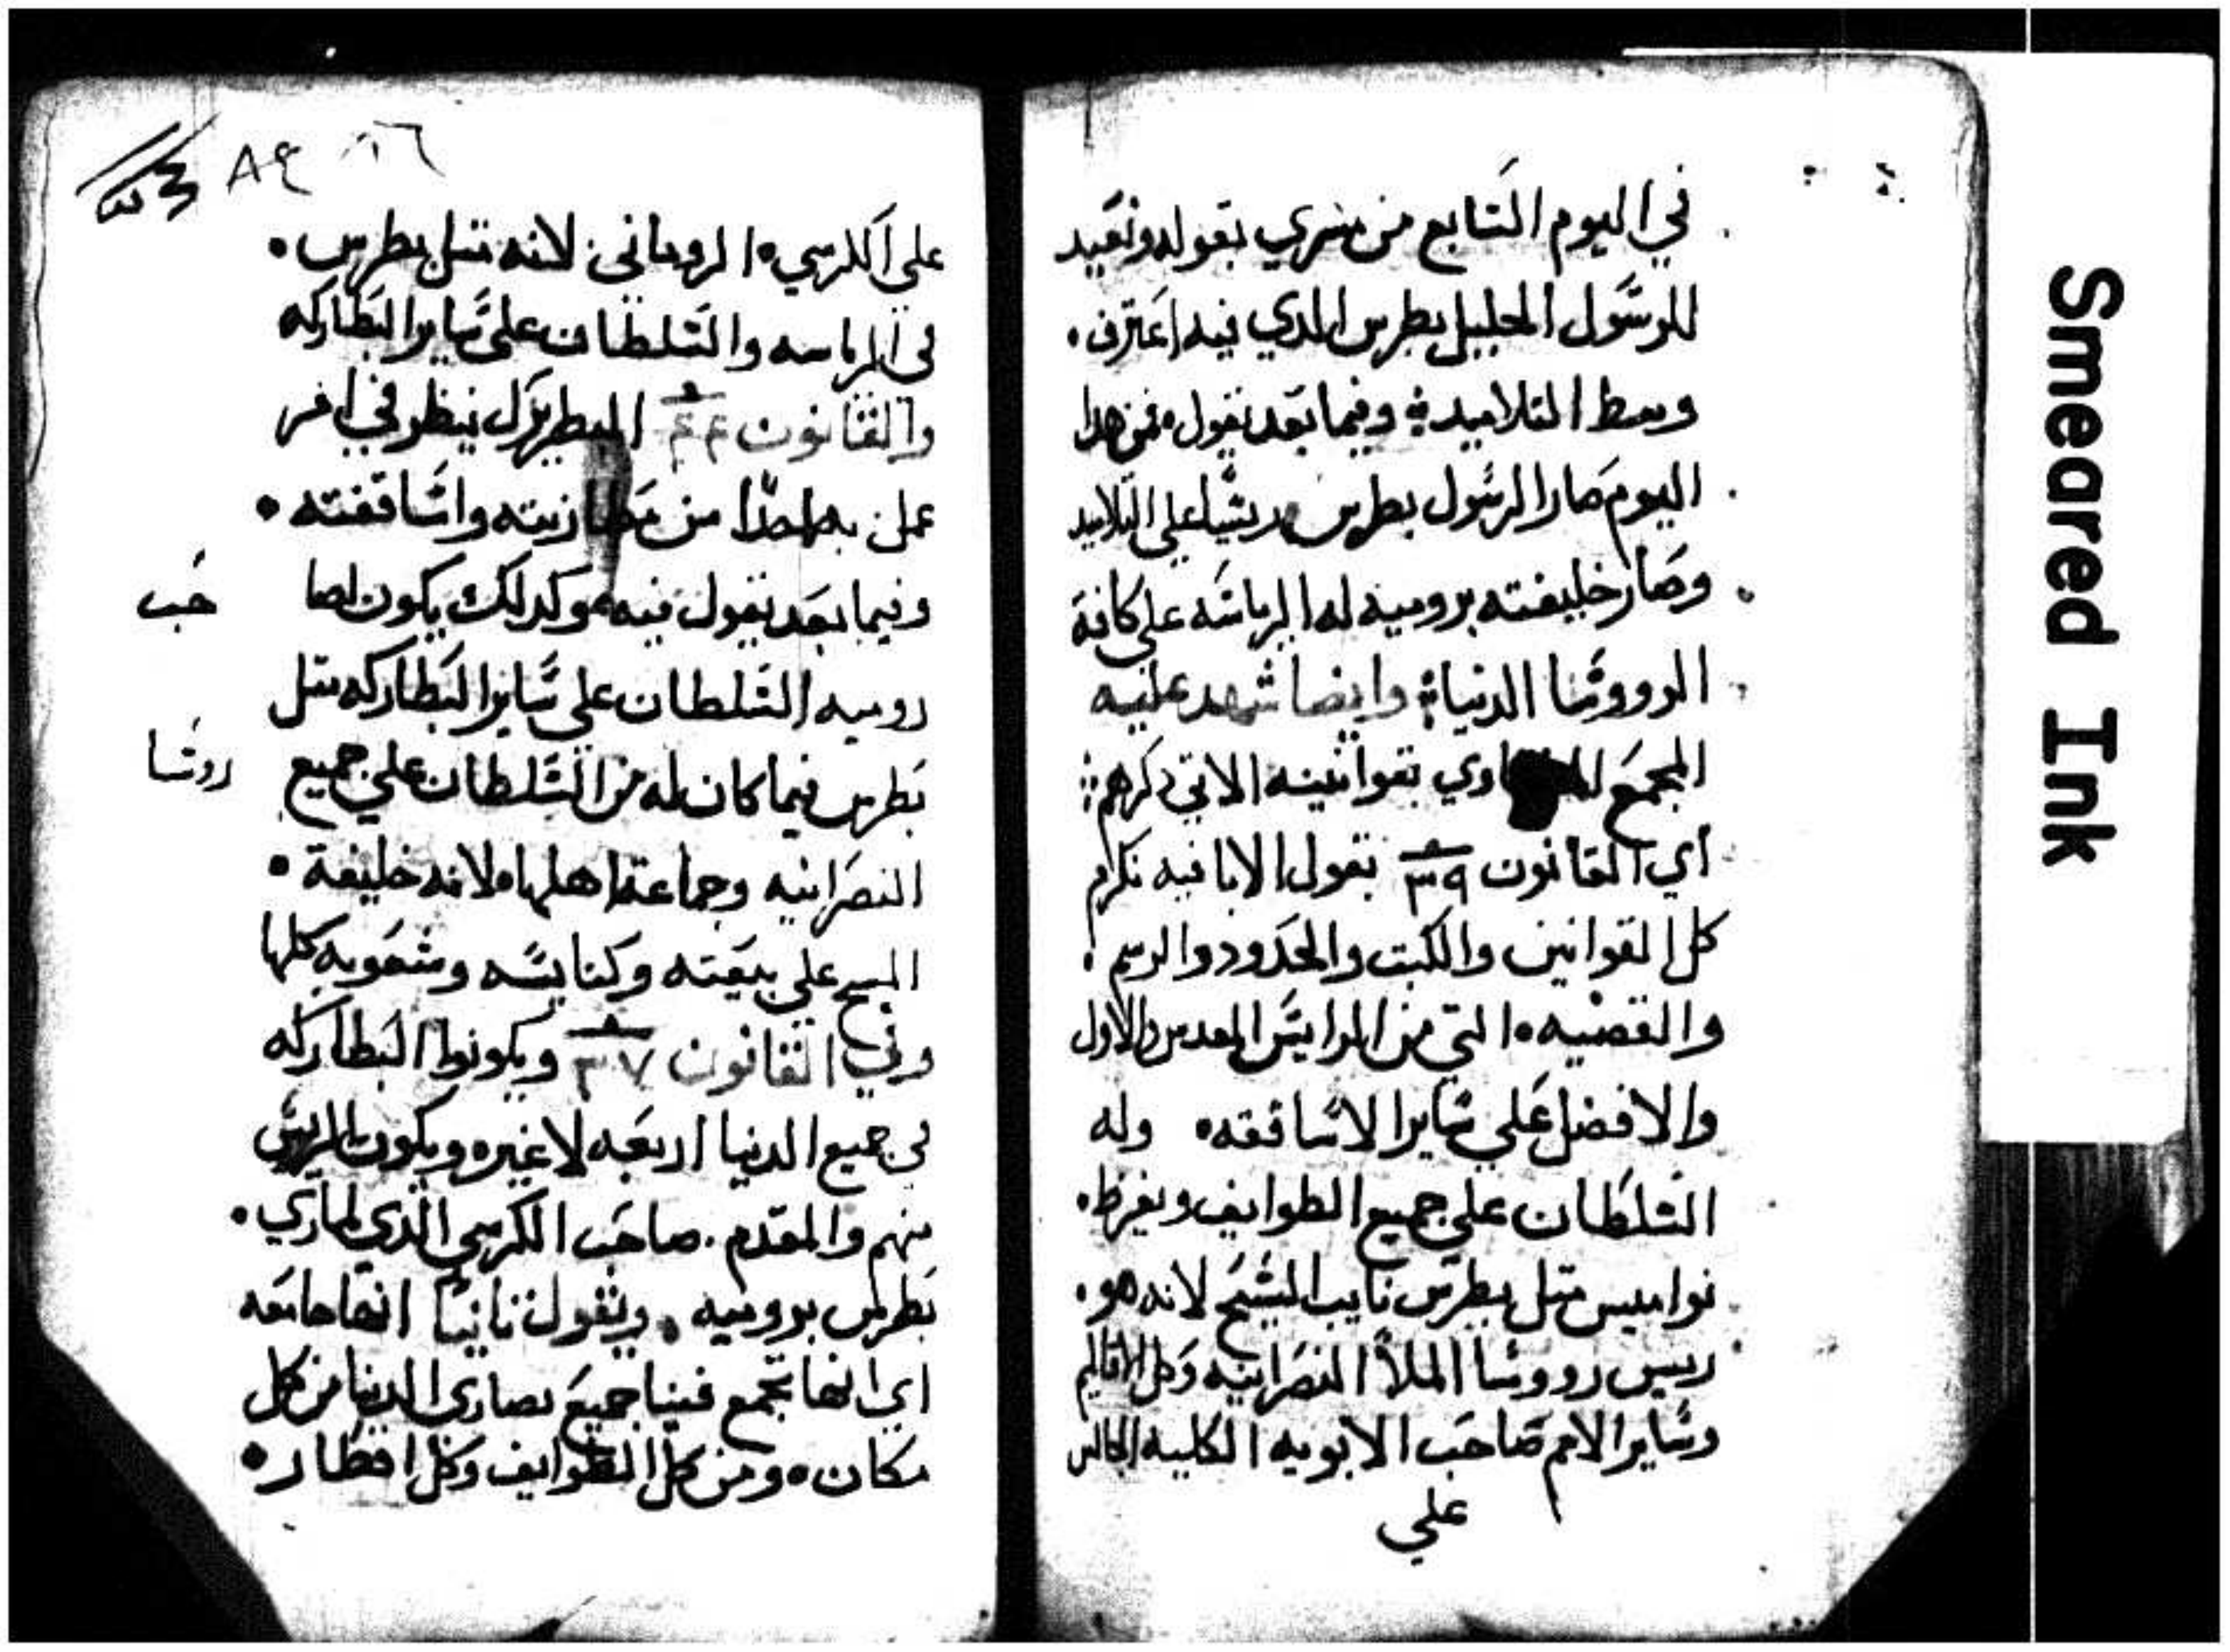 في اليوم السابع من مسري بقوله ونعيد
للرسول الجليل بطرس الدي فيه اعترف .
وسط التلاميد وفيما بعد نقول فمن هدا
اليوم صار الرسول بطرس ريسا علي التلاميد
وصار خليفته برومية له الرياسه علي كافة
الرووسا الدنيا وايضا شهد عليه
المجمع بقوانينه الاتي دكرهم
اي القانون ٣٩ بقول الابا فيه نكرم
كل القوانين والكتب والحدود والرسم
والقضيه التي من الرايس المقدس الاول
والافضل علي ساير الاساقفه وله
السلطان علي جميع الطوايف
نواميس متل بطرس نايب المسيح لانه هو .
رييس رووسا الملأ النصرانيه وكل الاقاليم
وساير الامم صاحب الابويه الكليه الجالس
علي
٨٤
علي الكرسي الروماني لانه متل بطرس .
في الرياسه والسلطان علي ساير البطاركه
والقانون ٤٤ البطريرك ينظر في امر
عمل به احدا من مطارنته واساقفته .
وفيما بعد نقول فيه وكدلك يكون لصا
حب
روميه السلطان علي ساير البطاركه متل
بطرس فيما كان له من السلطان علي جميع
روسا
النصرانيه وجماعة اهلها لانه خليفة .
المسيح علي بيعته وكنايسه وشعوبه كلها
وفي القانون ٣٧ ويكونوا البطاركه
في جميع الدنيا اربعه لا غيره ويكون الريس
منهم والمقدم . صاحب الكرسي الدي لماري .
بطرس بروميه . ونقول تانيا انها جامعه
اي انها تجمع فينا جميع نصاري الدنيا من كل
مكان ومن كل الطوايف وكل اقطار .
Smeared Ink